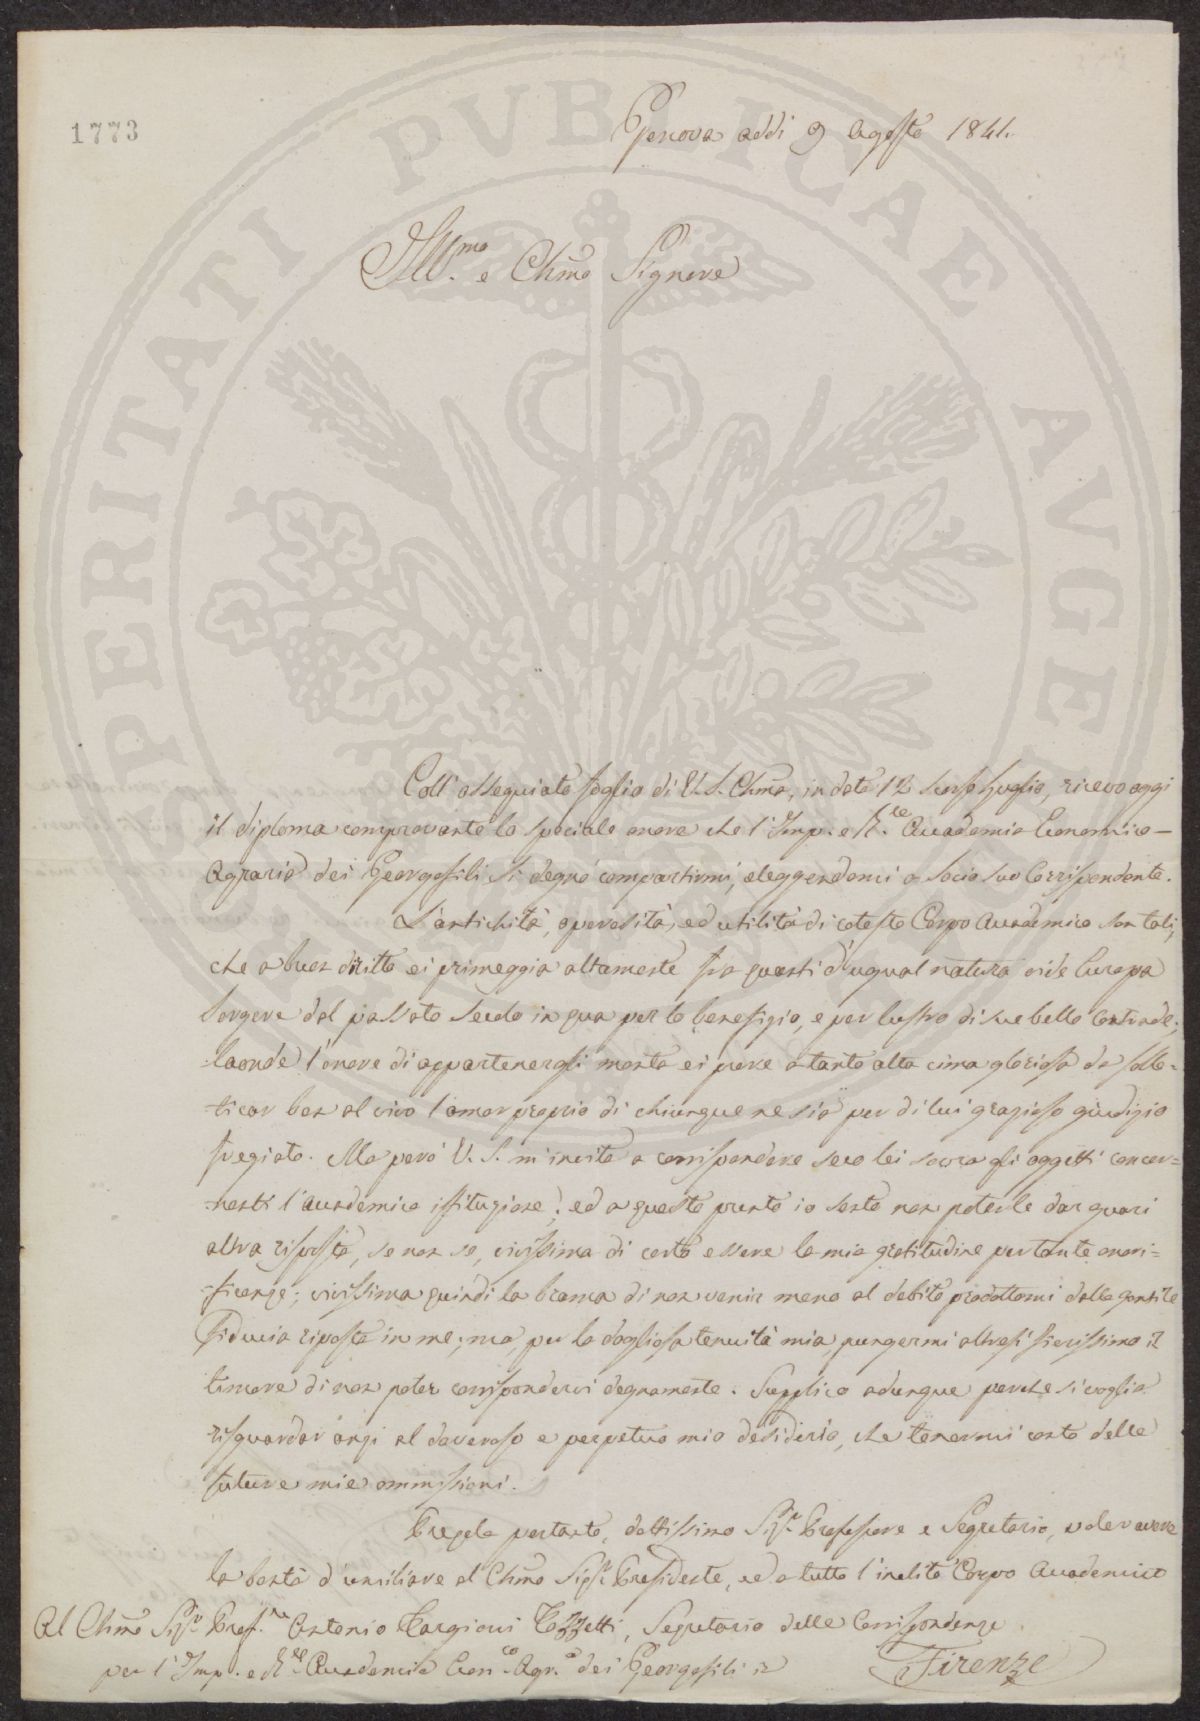 1773
Genova addì 9 Agosto 1841.
Ill.mo e Chmo Signore
Coll'ossequiato foglio di V. S. Chma, in data 12 scorso Luglio, ricevo oggi
il diploma comprovante lo speciale onore che l'Imp. e R.le Accademia Economico-
Agraria dei Georgofili si degnò compartirmi, eleggendomi a Socio suo Corrispondente.
L'antichità, operosità, ed utilità di cotesto Corpo Accademico son tali,
che a buon diritto ei primeggia altamente fra quanti d'ugual natura vide Europa
sorgere dal passato secolo in qua per lo benefizio, e per lustro di sue belle contrade;
laonde l'onore di appartenergli monta ei pure a tanto alta cima gloriosa da solle-
ticar ben al vivo l'amor proprio di chiunque ne sia per di lui grazioso giudizio
fregiato. Ma però V. S. m'invita a corrispondere seco lei sovra gli oggetti concer-
nenti l'accademica istituzione; ed a questo punto io sento non poterle dar guari
altra risposta, se non se, vivissima di certo essere la mia gratitudine per tante onori-
ficenze; vivissima quindi la brama di non venir meno al debito prodottomi dalla gentile
fiducia riposta in me; ma, per la dogliosa tenuità mia, pungermi altresì fierissimo il
timore di non poter corrispondervi degnamente. Supplico adunque perché si voglia
risguardar anzi al doveroso e perpetuo mio desiderio, che tenermi conto delle
future mie ommissioni.
Pregola pertanto, dottissimo Sig.r Professore e Segretario, voler avere
la bontà d'umiliare al Chmo Sig.r Presidente, ed a tutto l'inclito Corpo Accademico
Al Chmo Sig.r Prof.re Antonio Targioni Tozzetti, Segretario delle Corrispondenze
per l'Imp. e R.le Accademia Econ.co Agr.a dei Georgofili in
Firenze